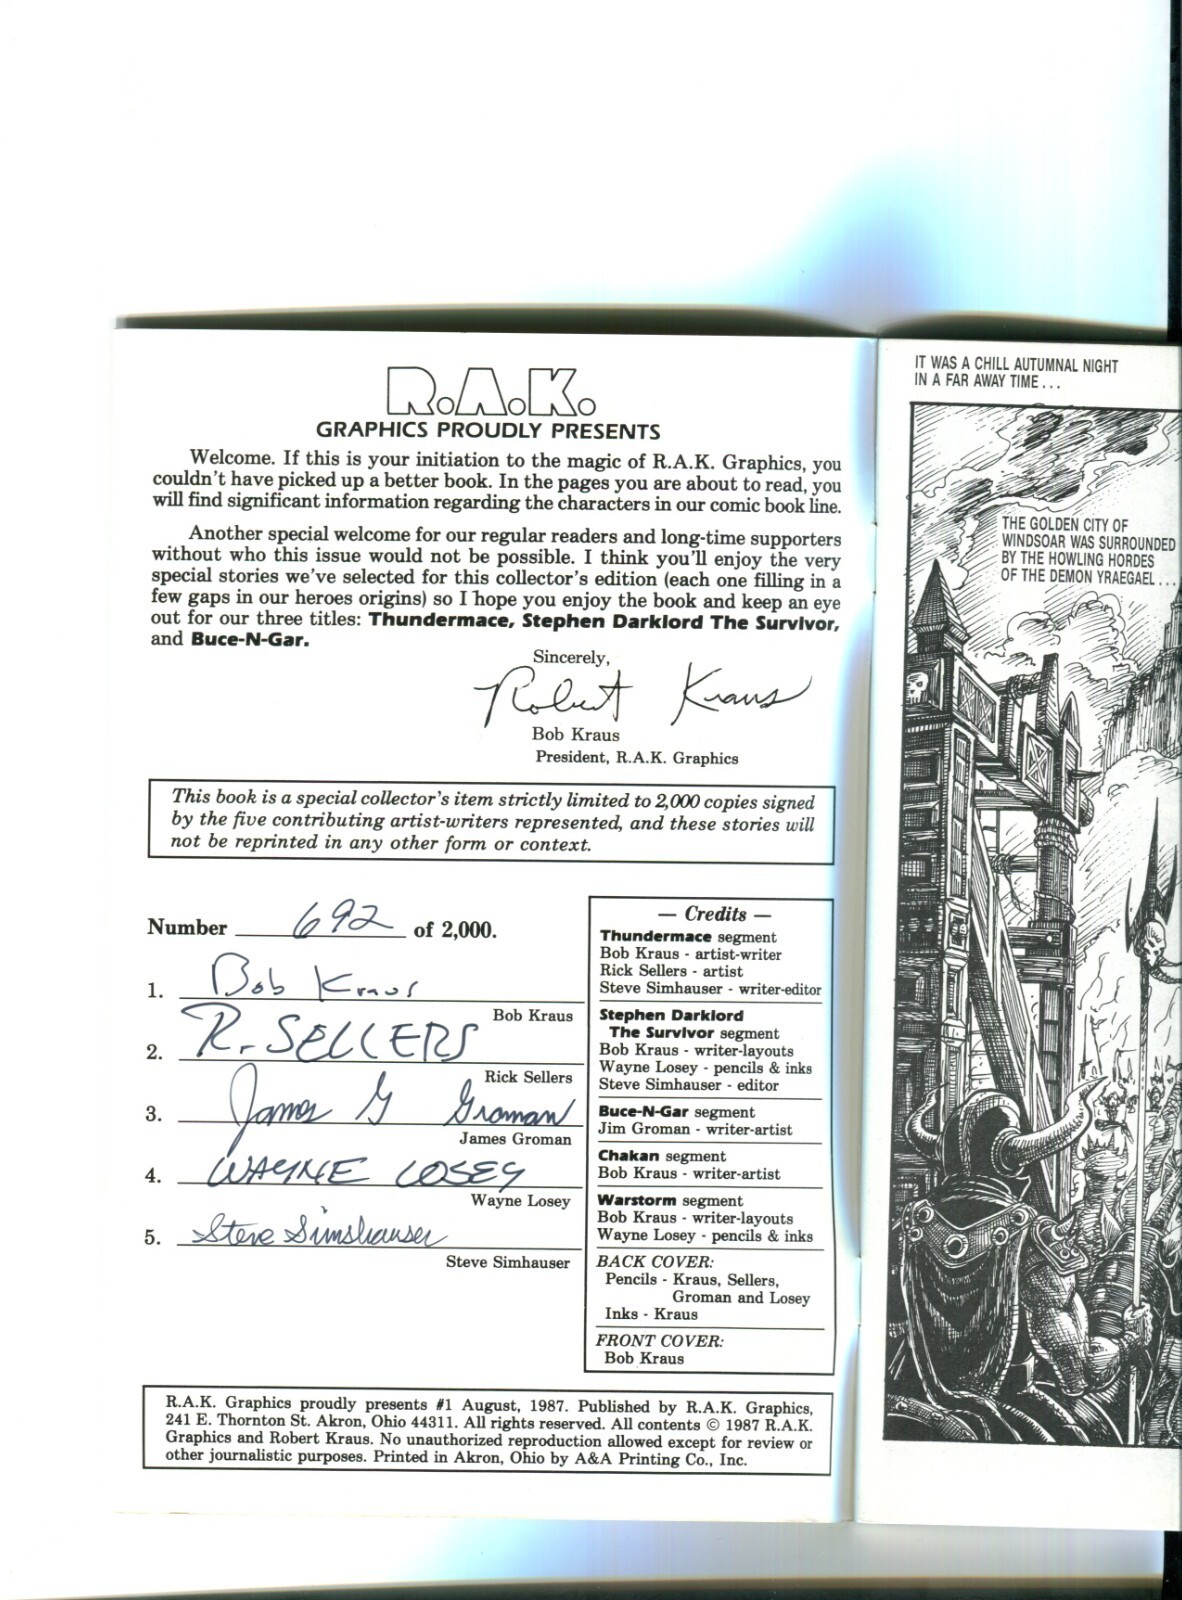 R.A.K.
GRAPHICS PROUDLY PRESENTS
Welcome. If this is your initiation to the magic of R.A.K. Graphics, you
couldn't have picked up a better book. In the pages you are about to read, you
will find significant information regarding the characters in our comic book line.
Another special welcome for our regular readers and long-time supporters
without who this issue would not be possible. I think you'll enjoy the very
special stories we've selected for this collector's edition (each one filling in a
few gaps in our heroes origins) so I hope you enjoy the book and keep an eye
out for our three titles: Thundermace, Stephen Darklord The Survivor,
and Buce-N-Gar.
Sincerely,
Robert Kraus
Bob Kraus
President, R.A.K. Graphics
This book is a special collector's item strictly limited to 2,000 copies signed
by the five contributing artist-writers represented, and these stories will
not be reprinted in any other form or context.
Number 692 of 2,000.
1. Bob Kraus
Bob Kraus
2. R. SELLERS
Rick Sellers
3. James G Groman
James Groman
4. WAYNE LOSEY
Wayne Losey
5. Steve Simshauser
Steve Simshauser
— Credits —
Thundermace segment
Bob Kraus - artist-writer
Rick Sellers - artist
Steve Simshauser - writer-editor
Stephen Darklord
The Survivor segment
Bob Kraus - writer-layouts
Wayne Losey - pencils & inks
Steve Simshauser - editor
Buce-N-Gar segment
Jim Groman - writer-artist
Chakan segment
Bob Kraus - writer-artist
Warstorm segment
Bob Kraus - writer-layouts
Wayne Losey - pencils & inks
BACK COVER:
Pencils - Kraus, Sellers,
Groman and Losey
Inks - Kraus
FRONT COVER:
Bob Kraus
R.A.K. Graphics proudly presents #1 August, 1987. Published by R.A.K. Graphics,
241 E. Thornton St. Akron, Ohio 44311. All rights reserved. All contents © 1987 R.A.K.
Graphics and Robert Kraus. No unauthorized reproduction allowed except for review or
other journalistic purposes. Printed in Akron, Ohio by A&A Printing Co., Inc.
IT WAS A CHILL AUTUMNAL NIGHT
IN A FAR AWAY TIME...
THE GOLDEN CITY OF
WINDSOAR WAS SURROUNDED
BY THE HOWLING HORDES
OF THE DEMON YRAEGAEL...